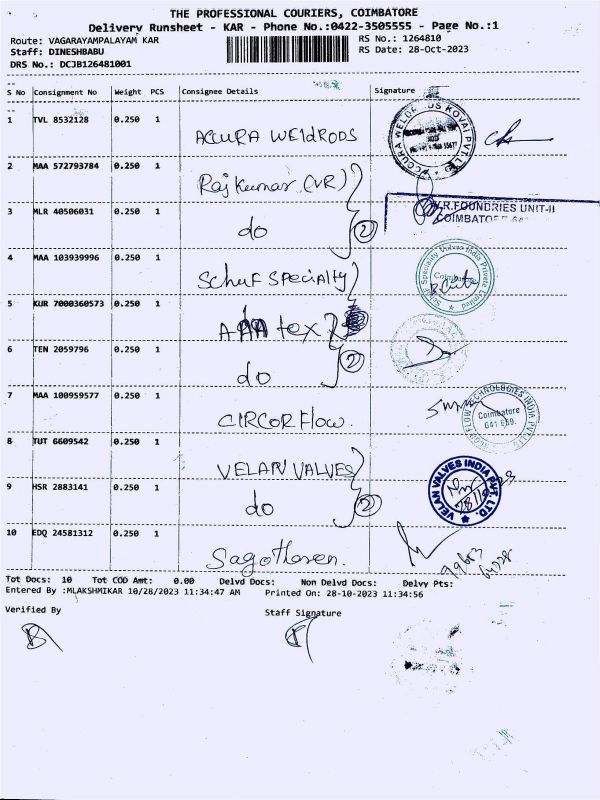 THE PROFESSIONAL COURIERS, COIMBATORE
Delivery Runsheet - KAR - Phone No.:0422-3505555 - Page No.:1
Route: VAGARAYAMPALAYAM KAR
RS No.: 1264810
Staff: DINESHBABU
RS Date: 28-Oct-2023
DRS No.: DCJB126481001
S No Consignment No Weight PCS Consignee Details Signature
1 TVL 8532128 0.250 1 ACCURA WELdRODS
2 MAA 572793784 0.250 1 Rajkumar (VR)
V.R.FOUNDRIES UNIT-II
COIMBATORE
3 MLR 40506031 0.250 1 do 2
4 MAA 103939996 0.250 1 Schuf SPECIALTY
Schuf Speciality Valves India Private Limited
Coimbatore
5 KUR 7000360573 0.250 1 tex
6 TEN 2059796 0.250 1 do 2
7 MAA 100959577 0.250 1 CIRCOR Flow.
CIRCOR FLOW TECHNOLOGIES INDIA PVT LTD
Coimbatore
641 659.
8 TUT 6609542 0.250 1 VELAN VALVES
VELAN VALVES INDIA PVT. LTD.
9 HSR 2883141 0.250 1 do 2
10 EDQ 24581312 0.250 1
Tot Docs: 10 Tot COD Amt: 0.00 Delvd Docs: Non Delvd Docs: Delvy Pts:
Entered By :MLAKSHMIKAR 10/28/2023 11:34:47 AM Printed On: 28-10-2023 11:34:56
Verified By Staff Signature